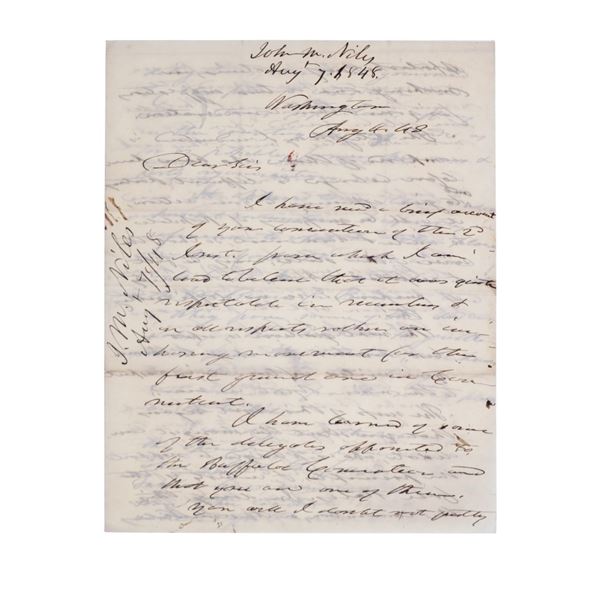 John M. Niles
Augt 7. 1848.
Washington
Aug 4. 48
Dear Sir
I have read a brief account
of your convention of the 2d
Inst. from which I am
lead to beleave that it was quite
respectable in numbers &
in all respects rather an im
movement for the
first ground one in Con
necticut.
I have learned of some
of the delegates appointed to
the Buffalo Convention and
that you are one of them.
You will I doubt not
J. M. Niles
Aug 7/48